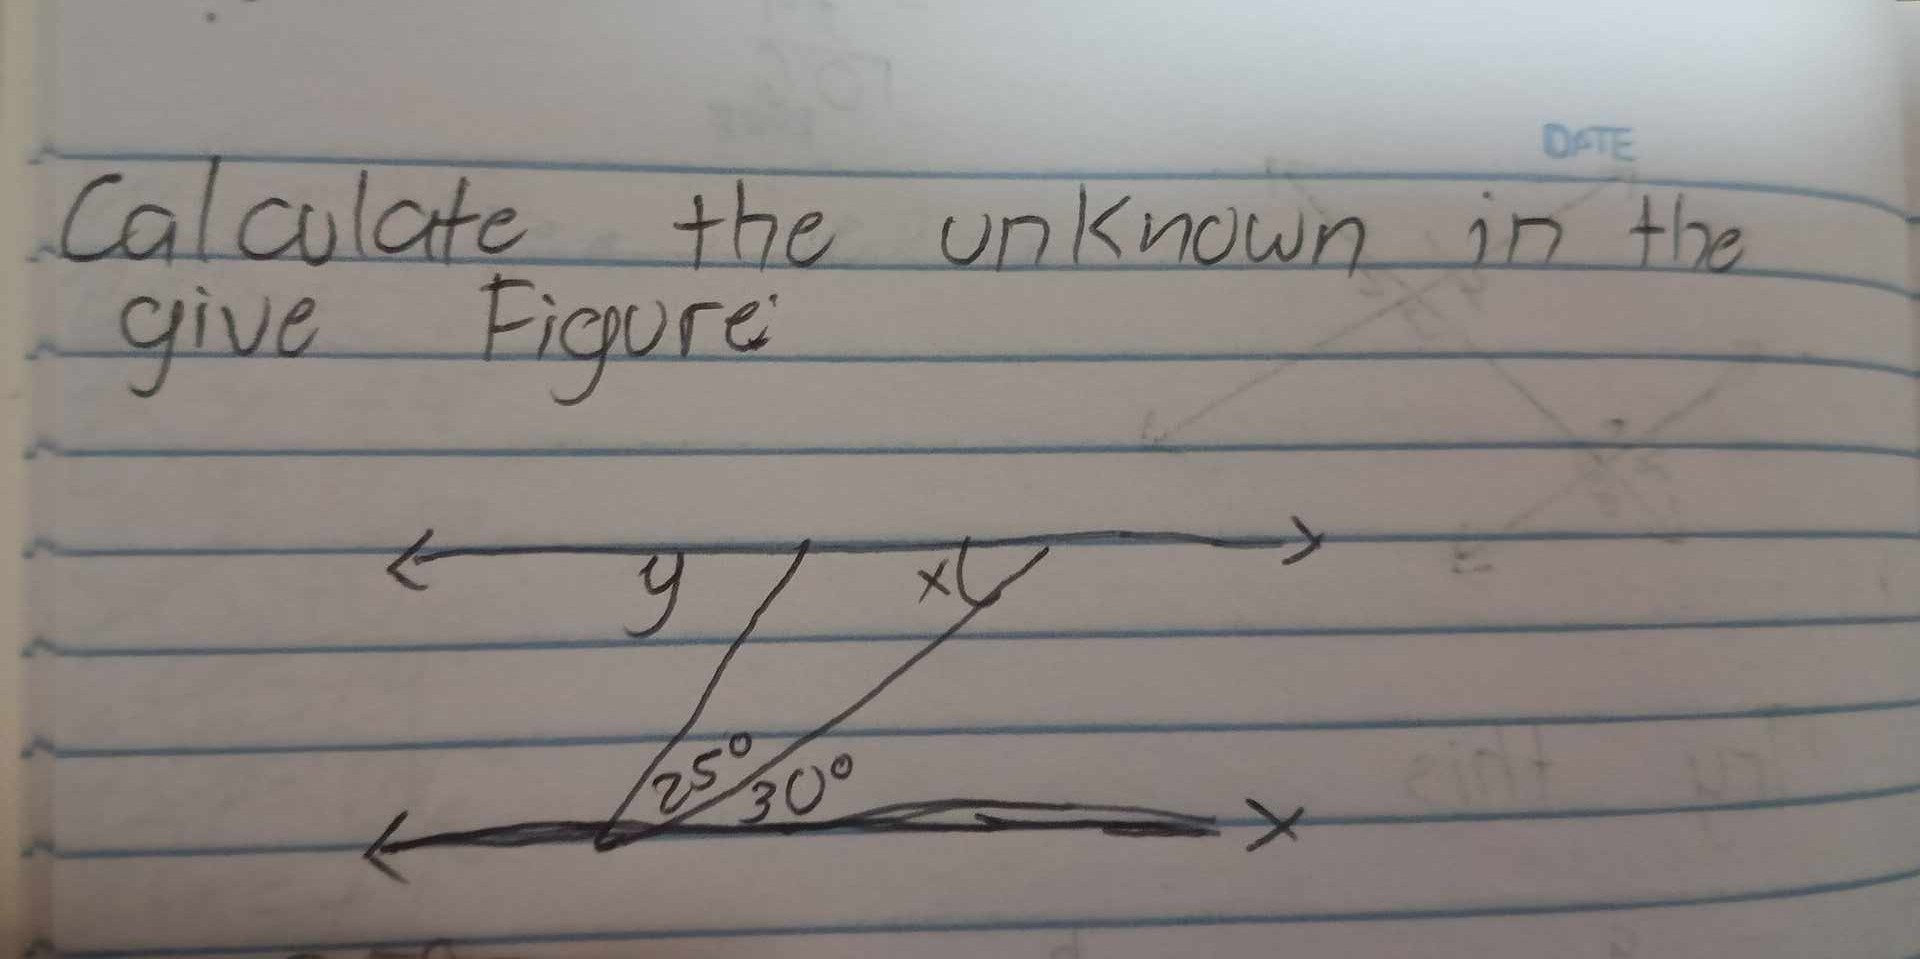 DATE
Calculate the unknown in the
give Figure:
y x
25° 30°